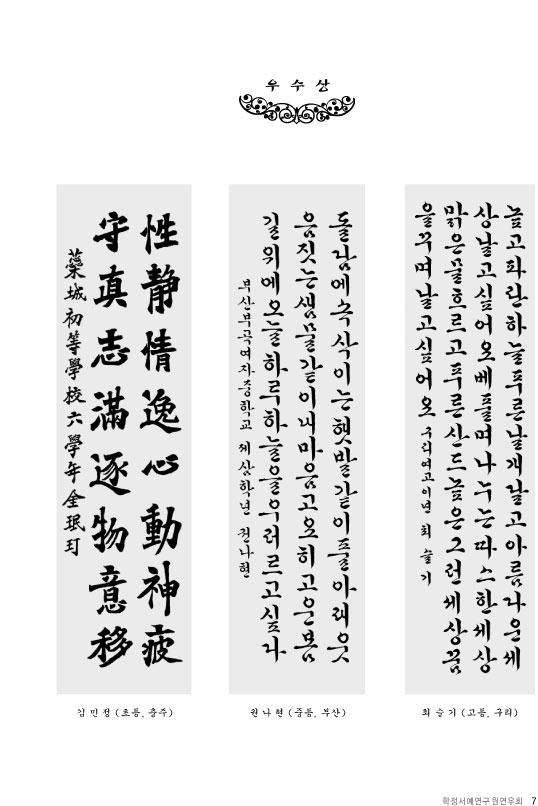 우 수 상
性靜情逸心動神疲
守真志滿逐物意移
蘂城初等學校六學年金珉玎
김민정 (초등, 충주)
돌담에속삭이는햇발같이풀아래웃
음짓는샘물같이내마음고요히고운봄
길위에오늘하루하늘을우러르고싶다
부산부곡여자중학교 제삼학년 권나현
권나현 (중등, 부산)
높고파란하늘푸른날개날고아름다운세
상날고싶어오베풀며나누는따스한세상
맑은물흐르고푸른산드높은그런세상꿈
을꾸며날고싶어오 구리여고이년 최슬기
최슬기 (고등, 구리)
학정서예연구원연우회 7